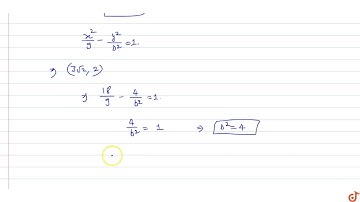 x²/9 - y²/b² = 1.
⇒ (3√2, 2)
⇒ 18/9 - 4/b² = 1.
4/b² = 1 ⇒ b² = 4